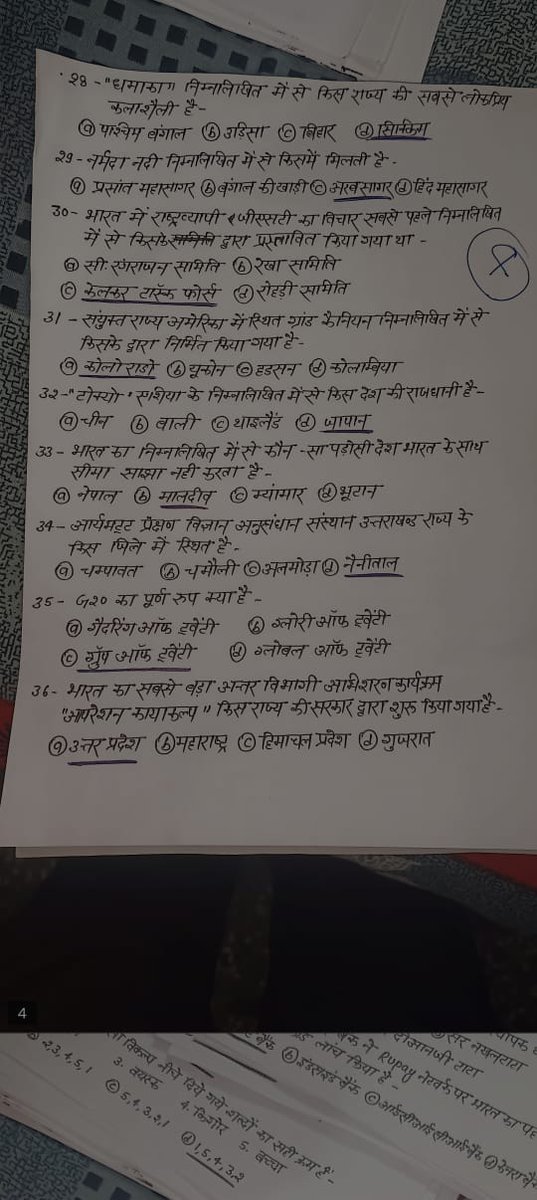 28 - "धमाका" निम्नलिखित में से किस राज्य की सबसे लोकप्रिय
कला शैली है -
(a) पश्चिम बंगाल (b) उडिसा (c) बिहार (d) सिक्किम
29 - नर्मदा नदी निम्नलिखित में से किसमें मिलती है -
(a) प्रसांत महासागर (b) बंगाल की खाड़ी (c) अरब सागर (d) हिंद महासागर
30 - भारत में राष्ट्रव्यापी जीएसटी का विचार सबसे पहले निम्नलिखित
में से किसके समिति द्वारा प्रस्तावित किया गया था -
(a) सी. रंगराजन समिति (b) रेखा समिति
(c) केलकर टास्क फोर्स (d) रोहड़ी समिति
31 - संयुक्त राज्य अमेरिका में स्थित ग्रांड कैनियन निम्नलिखित में से
किसके द्वारा निर्मित किया गया है -
(a) कोलोराडो (b) यूकोन (c) हडसन (d) कोलम्बिया
32 - "टोक्यो" एशिया के निम्नलिखित में से किस देश की राजधानी है -
(a) चीन (b) बाली (c) थाइलैंड (d) जापान
33 - भारत का निम्नलिखित में से कौन - सा पड़ोसी देश भारत के साथ
सीमा साझा नही करता है -
(a) नेपाल (b) मालदीव (c) म्यांमार (d) भूटान
34 - आर्यभट्ट प्रेक्षण विज्ञान अनुसंधान संस्थान उत्तराखण्ड राज्य के
किस जिले में स्थित है -
(a) चम्पावत (b) चमौली (c) अलमोड़ा (d) नैनीताल
35 - G20 का पूर्ण रुप क्या है -
(a) गैदरिंग ऑफ ट्वेंटी (b) ग्लोरी ऑफ ट्वेंटी
(c) ग्रुप ऑफ ट्वेंटी (d) ग्लोबल ऑफ ट्वेंटी
36 - भारत का सबसे बड़ा अन्तर विभागी अभिशरण कार्यक्रम
"आपरेशन कायाकल्प" किस राज्य की सरकार द्वारा शुरू किया गया है -
(a) उत्तर प्रदेश (b) महाराष्ट्र (c) हिमाचल प्रदेश (d) गुजरात
4
बैंक ने Rupay नेटवर्क पर भारत का
लांच किया है -
बैंक (b) इंडसइंड बैंक (c) आईसीआईसीआई बैंक (d) केनरा
विकल्प नीचे दिये गये शब्दों का सही क्रम है -
3. वयस्क 4. किशोर 5. बच्चा
2,3,4,5,1 (c) 5,4,3,2,1 (d) 1,5,4,3,2